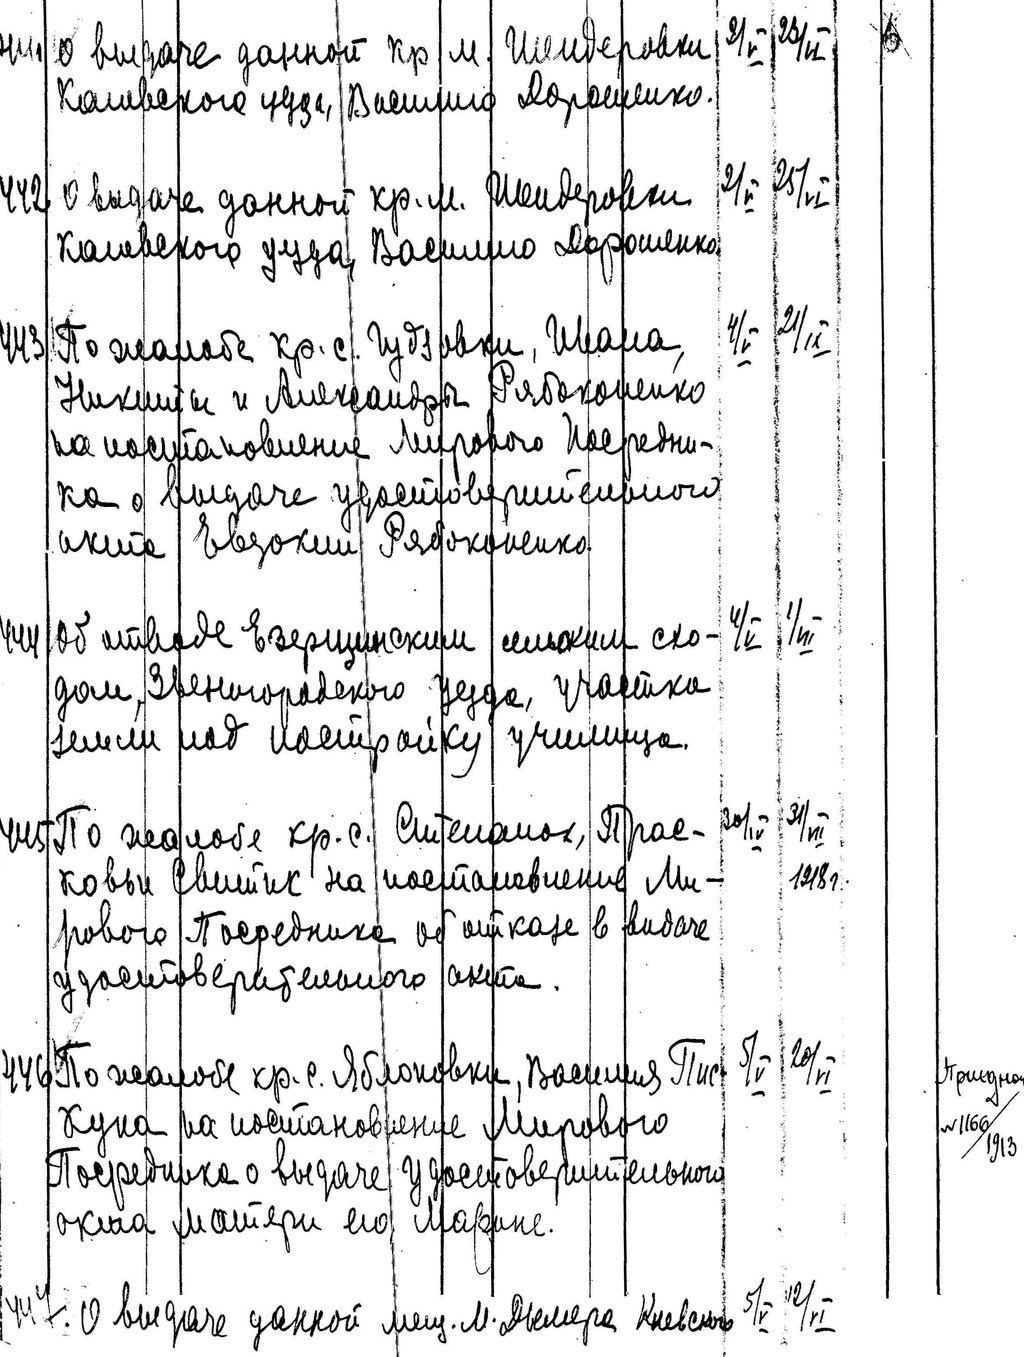 О выдаче данной кр. м. Шендеровки 2/V 23/VI
Каневского уезда, Василию Дорошенко.
442 О выдаче данной кр. м. Шендеровки 2/V 25/VI
Каневского уезда, Василию Дорошенко.
443 По жалобе кр. с. Гудзовки, Ивана, 4/V 21/IX
Никиты и Александры Рябоконенко
на постановление Мирового Посредни-
ка о выдаче удостоверительного
акта Евдокии Рябоконенко.
444 Об отводе Езерщинским сельским схо- 4/V 1/VII
дом, Звенигородского уезда, участка
земли под постройку училища.
445 По жалобе кр. с. Степанок, Прас- 30/IV 31/VII
ковьи Свитик на постановление Ми- 1918 г.
рового Посредника об отказе в видаче
удостоверительного акта.
446 По жалобе кр. с. Яблоновки, Василия Пис- 5/V 20/VI
куна на постановление Мирового № 1166/1913
Посредника о выдаче удостоверительного
акта матери его Марине.
447. О выдаче данной мещ. м. Дымера Киевского 5/V 12/VI